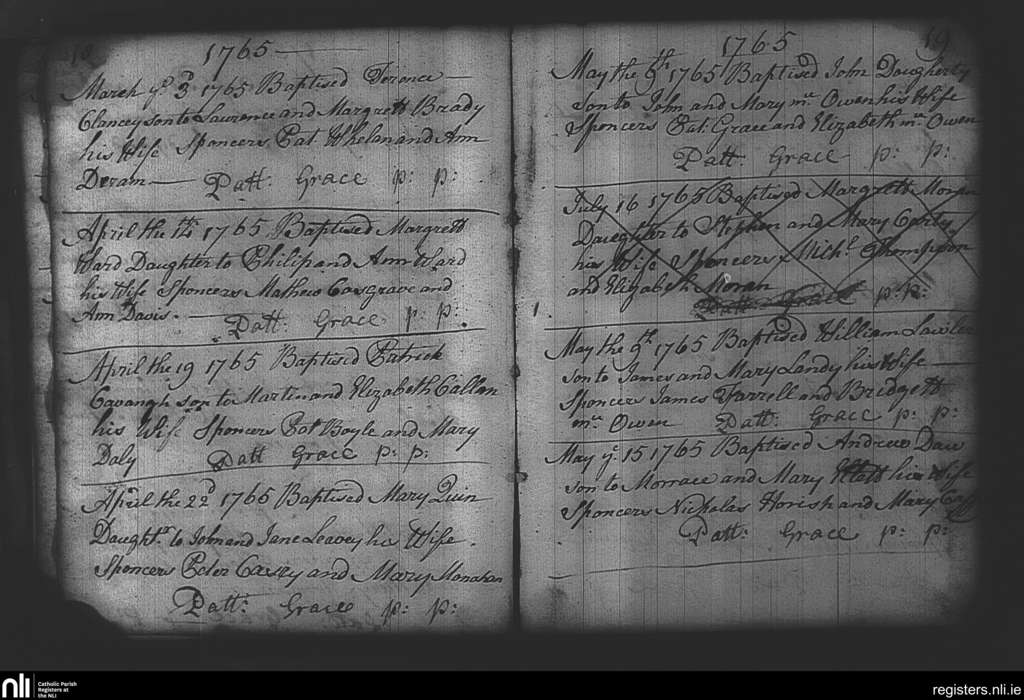 18
1765
March ye 3d 1765 Baptised Terence
Clancey son to Lawrence and Margrett Brady
his Wife Spencers Pat Whelan and Ann
Doran Patt: Grace p: p:
April the 14 1765 Baptised Margrett
Ward Daughter to Philip and Ann Ward
his Wife Spencers Mathew Cosgrave and
Ann Davis. Patt: Grace p: p:
April the 19 1765 Baptised Patrick
Cavangh son to Martin and Elizabeth Callan
his Wife Spencers Pat Boyle and Mary
Daly Patt Grace p: p:
April the 22d 1765 Baptised Mary Quin
Daughtr to John and Jane Leavey his Wife.
Spencers Peter Casey and Mary Monahan
Patt: Grace p: p:
19
1765
May the 9th 1765 Baptised John Daugherty
son to John and Mary mc Owen his Wife
Spencers Pat. Grace and Elizabeth mc Owen
Patt Grace p: p:
July 16 1765 Baptised Margrett Moran
Daughter to Stephen and Mary
his Wife Spencers Michl Thompson
and Elizabeth Moran
Patt Grace p: p:
May the 9th 1765 Baptised William Lawler
son to James and Mary Landy his Wife
Spencers James Farrell and Bridgett
mc Owen Patt: Grace p: p:
May ye 15 1765 Baptised Andrew
son to and Mary his Wife
Spencers Nichalas and Mary
Patt: Grace p: p:
nli
Catholic Parish
Registers at
the NLI
registers.nli.ie